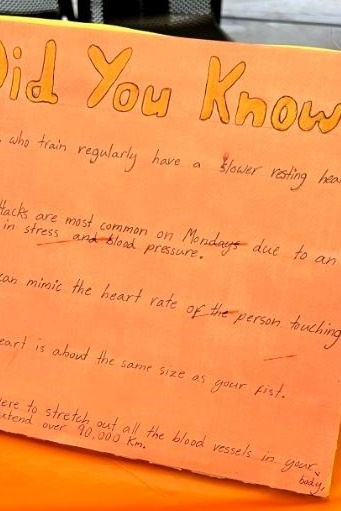 Did You Know
who train regularly have a slower resting hea
tacks are most common on Mondays due to an
in stress and blood pressure.
can mimic the heart rate of the person touching
eart is about the same size as your fist.
ere to stretch out all the blood vessels in your
extend over 90,000 Km. body,